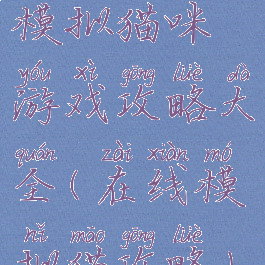 模拟猫咪
yóu xì gōng lüè dà
游戏攻略大
quán zài xiàn mó
全(在线模
nǐ māo gōng lüè
拟猫攻略)